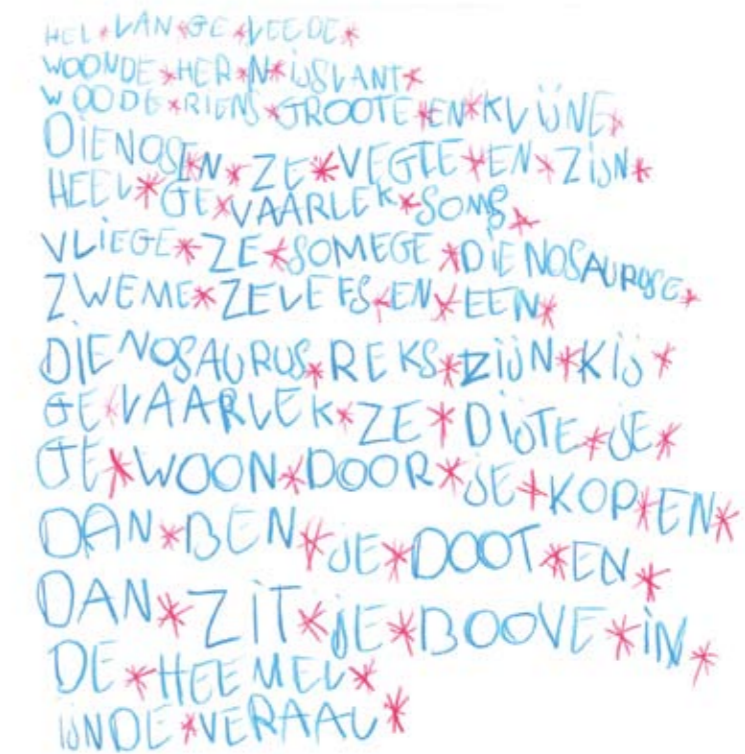 HEL*VAN*GE*LEEDE*
WOONDE*HER*IN*IJSLANT*
WOODE*RIENS*GROOTE*EN*KLIJNE*
DIENOSEN*ZE*VEGTE*EN*ZIJN*
HEEL*GE*VAARLEK*SOMS*
VLIEGE*ZE*SOMEGE*DIENOSAURUSE*
ZWEME*ZELEFS*EN*EEN*
DIENOSAURUS*REKS*ZIJN*KIJ*
GE*VAARLEK*ZE*DIJTE*JE*
GE*WOON*DOOR*JE*KOP*EN*
DAN*BEN*JE*DOOT*EN*
DAN*ZIT*JE*BOOVE*IN*
DE*HEEMEL*
IJNDE*VERAAL*